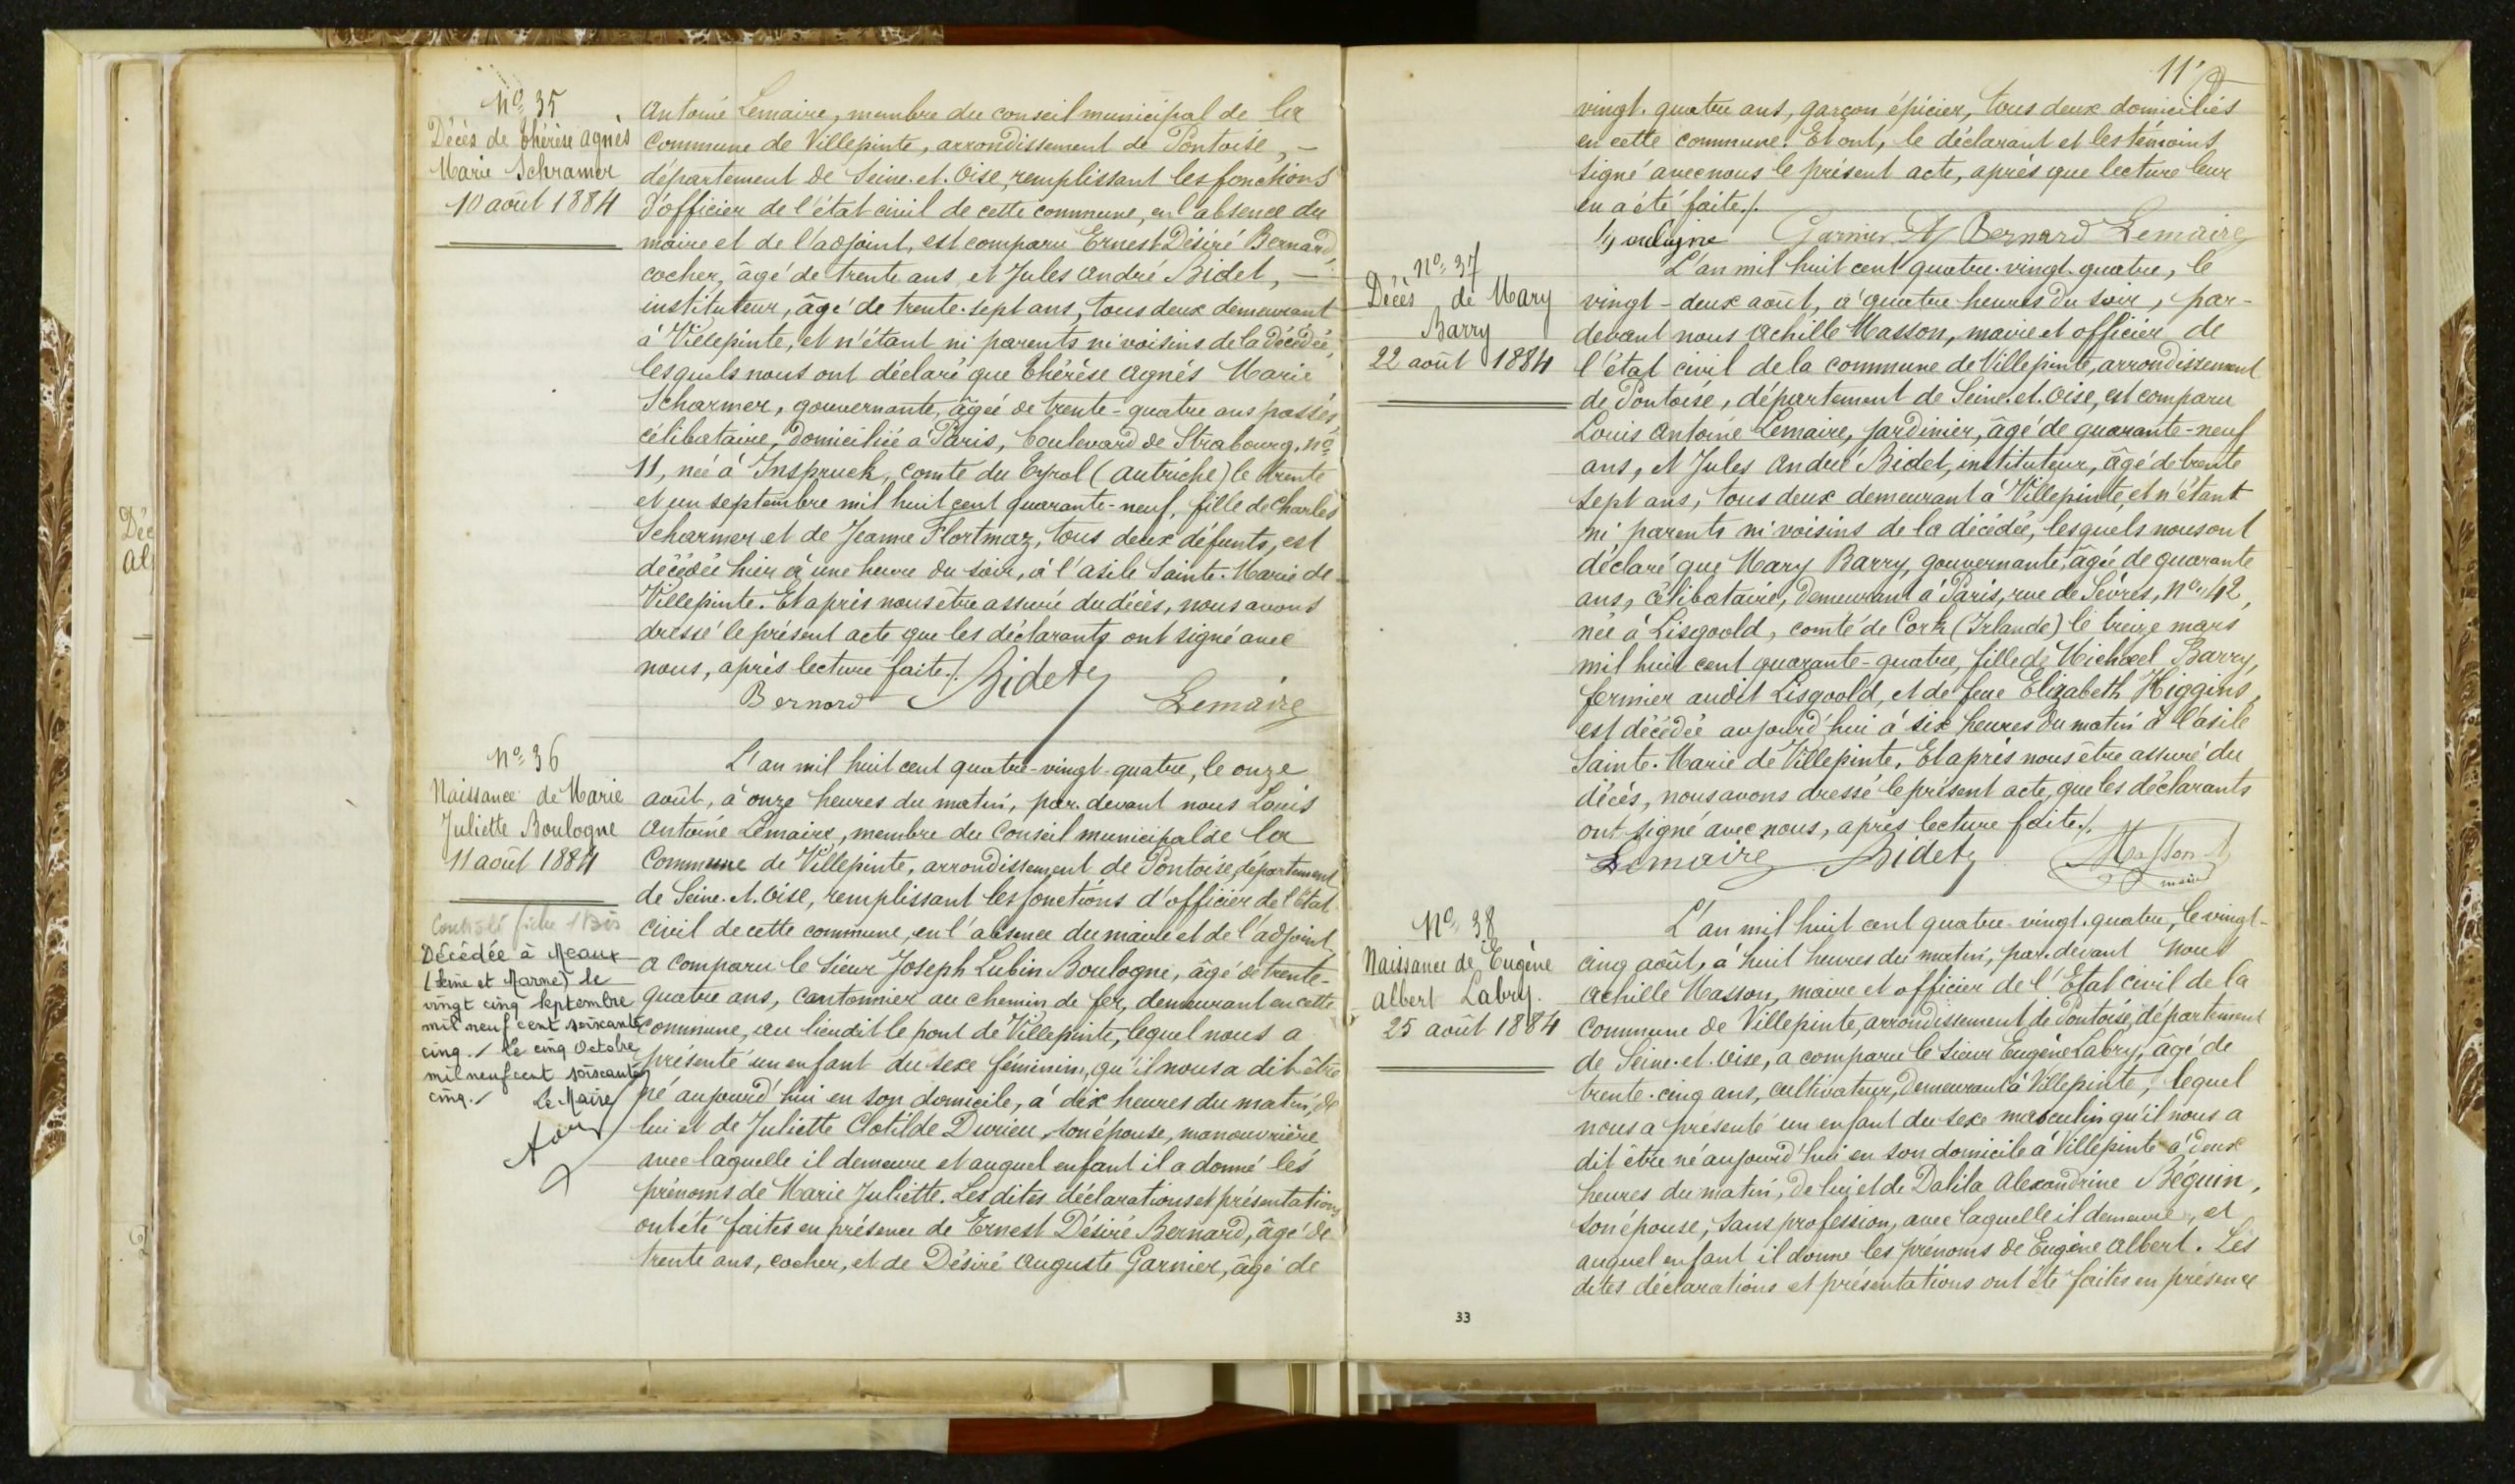 Nº 35
Décès de Thérèse Agnès
Marie Schramer
10 août 1884
Antoine Lemaire, membre du conseil municipal de la
Commune de Villepinte, arrondissement de Pontoise, –
département de Seine-et-Oise, remplissant les fonctions
d'officier de l'état civil de cette commune, en l'absence du
maire et de l'adjoint, est comparu Ernest Désiré Bernard,
cocher, âgé de trente ans, et Jules André Bidet, –
instituteur, âgé de trente-sept ans, tous deux demeurant
à Villepinte, et n'étant ni parents ni voisins de la décédée,
lesquels nous ont déclaré que Thérèse Agnès Marie
Scharmer, gouvernante, âgée de trente-quatre ans passés,
célibataire, domiciliée à Paris, boulevard de Strabourg, nº
11, née à Inspruck, comté du Tyrol (Autriche) le trente
et un septembre mil huit cent quarante-neuf, fille de Charles
Scharmer et de Jeanne Flortmaz, tous deux défunts, est
décédée hier à une heure du soir, à l'asile Sainte-Marie de
Villepinte. Et après nous être assuré du décès, nous avons
dressé le présent acte que les déclarants ont signé avec
nous, après lecture faite./.
Bernard Bidet Lemaire
Nº 36
Naissance de Marie
Juliette Boulogne
11 août 1884
Décédée à Meaux
(Seine et Marne) le
vingt cinq septembre
mil neuf cent soixante
cinq. / Le cinq Octobre
mil neuf cent soixante
cinq. / Le Maire
L'an mil huit cent quatre-vingt-quatre, le onze
août, à onze heures du matin, par-devant nous Louis
Antoine Lemaire, membre du Conseil municipal de la
Commune de Villepinte, arrondissement de Pontoise, département
de Seine-et-Oise, remplissant les fonctions d'officier de l'état
civil de cette commune, en l'absence du maire et de l'adjoint,
a comparu le sieur Joseph Lubin Boulogne, âgé de trente-
quatre ans, cantonnier au chemin de fer, demeurant en cette
commune, au lieudit le pont de Villepinte, lequel nous a
présenté un enfant du sexe féminin, qu'il nous a dit être
né aujourd'hui en son domicile, à dix heures du matin, de
lui et de Juliette Clotilde Durieu, son épouse, manouvrière
avec laquelle il demeure et auquel enfant il a donné les
prénoms de Marie Juliette. Les dites déclarations et présentations
ont été faites en présence de Ernest Désiré Bernard, âgé de
trente ans, cocher, et de Désiré Auguste Garnier, âgé de
11
vingt-quatre ans, garçon épicier, tous deux domiciliés
en cette commune. Et ont, le déclarant et les témoins
signé avec nous le présent acte, après que lecture leur
en a été faite./.
Boulogne Garnier A Bernard Lemaire
Nº 37
Décès de Mary
Barry
22 août 1884
L'an mil huit cent quatre-vingt-quatre, le
vingt-deux août, à quatre heures du soir, par-
devant nous Achille Masson, maire et officier de
l'état civil de la commune de Villepinte, arrondissement
de Pontoise, département de Seine-et-Oise, est comparu
Louis Antoine Lemaire, jardinier, âgé de quarante-neuf
ans, et Jules André Bidet, instituteur, âgé de trente
sept ans, tous deux demeurant à Villepinte, et n'étant
ni parents ni voisins de la décédée, lesquels nous ont
déclaré que Mary Barry, gouvernante, âgée de quarante
ans, célibataire, demeurant à Paris, rue de Sèvres, Nº 42,
née à Lisgoold, comté de Cork (Irlande) le treize mars
mil huit cent quarante-quatre, fille de Michael Barry,
fermier audit Lisgoold, et de feue Elizabeth Higgins,
est décédée aujourd'hui à six heures du matin à l'asile
Sainte-Marie de Villepinte. Et après nous être assuré du
décès, nous avons dressé le présent acte, que les déclarants
ont signé avec nous, après lecture faite./.
Lemaire Bidet Masson
maire
Nº 38
Naissance de Eugène
Albert Labry.
25 août 1884
L'an mil huit cent quatre-vingt-quatre, le vingt-
cinq août, à huit heures du matin, par-devant nous
Achille Masson, maire et officier de l'Etat civil de la
commune de Villepinte, arrondissement de Pontoise, département
de Seine-et-Oise, a comparu le sieur Eugène Labry, âgé de
trente-cinq ans, cultivateur, demeurant à Villepinte, lequel
nous a présenté un enfant du sexe masculin qu'il nous a
dit être né aujourd'hui en son domicile à Villepinte à deux
heures du matin, de lui et de Dalila Alexandrine Béguin,
son épouse, sans profession, avec laquelle il demeure, et
auquel enfant il donne les prénoms de Eugène Albert. Les
dites déclarations et présentations ont été faites en présence
33